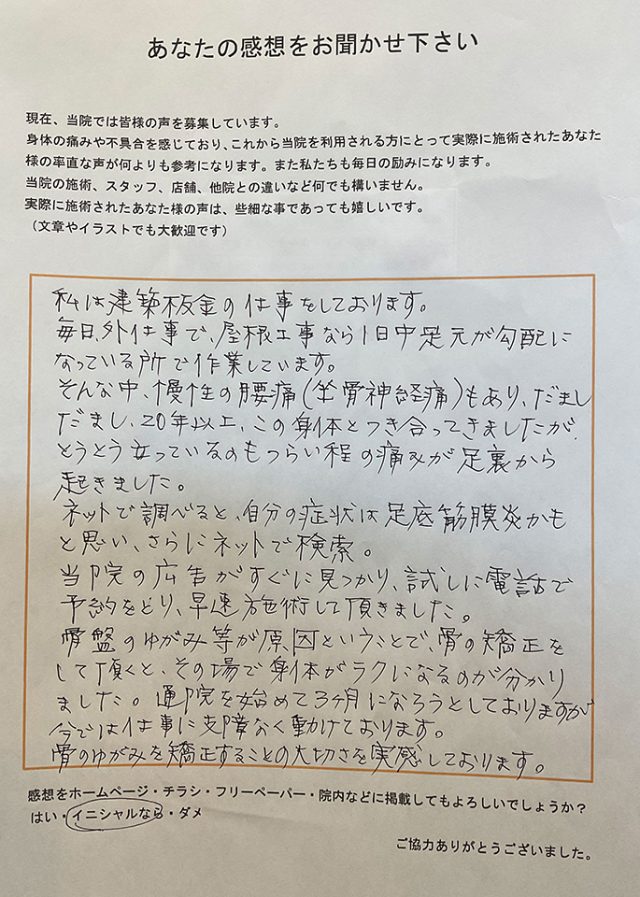 あなたの感想をお聞かせ下さい
現在、当院では皆様の声を募集しています。
身体の痛みや不具合を感じており、これから当院を利用される方にとって実際に施術されたあなた
様の率直な声が何よりも参考になります。また私たちも毎日の励みになります。
当院の施術、スタッフ、店舗、他院との違いなど何でも構いません。
実際に施術されたあなた様の声は、些細な事であっても嬉しいです。
（文章やイラストでも大歓迎です）
私は建築板金の仕事をしております。
毎日、外仕事で、屋根工事なら1日中足元が勾配に
なっている所で作業しています。
そんな中、慢性の腰痛(坐骨神経痛)もあり、だまし
だまし、20年以上、この身体とつき合ってきましたが、
とうとう立っているのもつらい程の痛みが足裏から
起きました。
ネットで調べると、自分の症状は足底筋膜炎かも
と思い、さらにネットで検索。
当院の広告がすぐに見つかり、試しに電話で
予約をとり、早速施術して頂きました。
骨盤のゆがみ等が原因ということで、骨の矯正を
して頂くと、その場で身体がラクになるのが分かり
ました。通院を始めて3ヶ月になろうとしておりますが
今では仕事に支障なく動けております。
骨のゆがみを矯正することの大切さを実感しております。
感想をホームページ・チラシ・フリーペーパー・院内などに掲載してもよろしいでしょうか？
はい・イニシャルなら・ダメ
ご協力ありがとうございました。